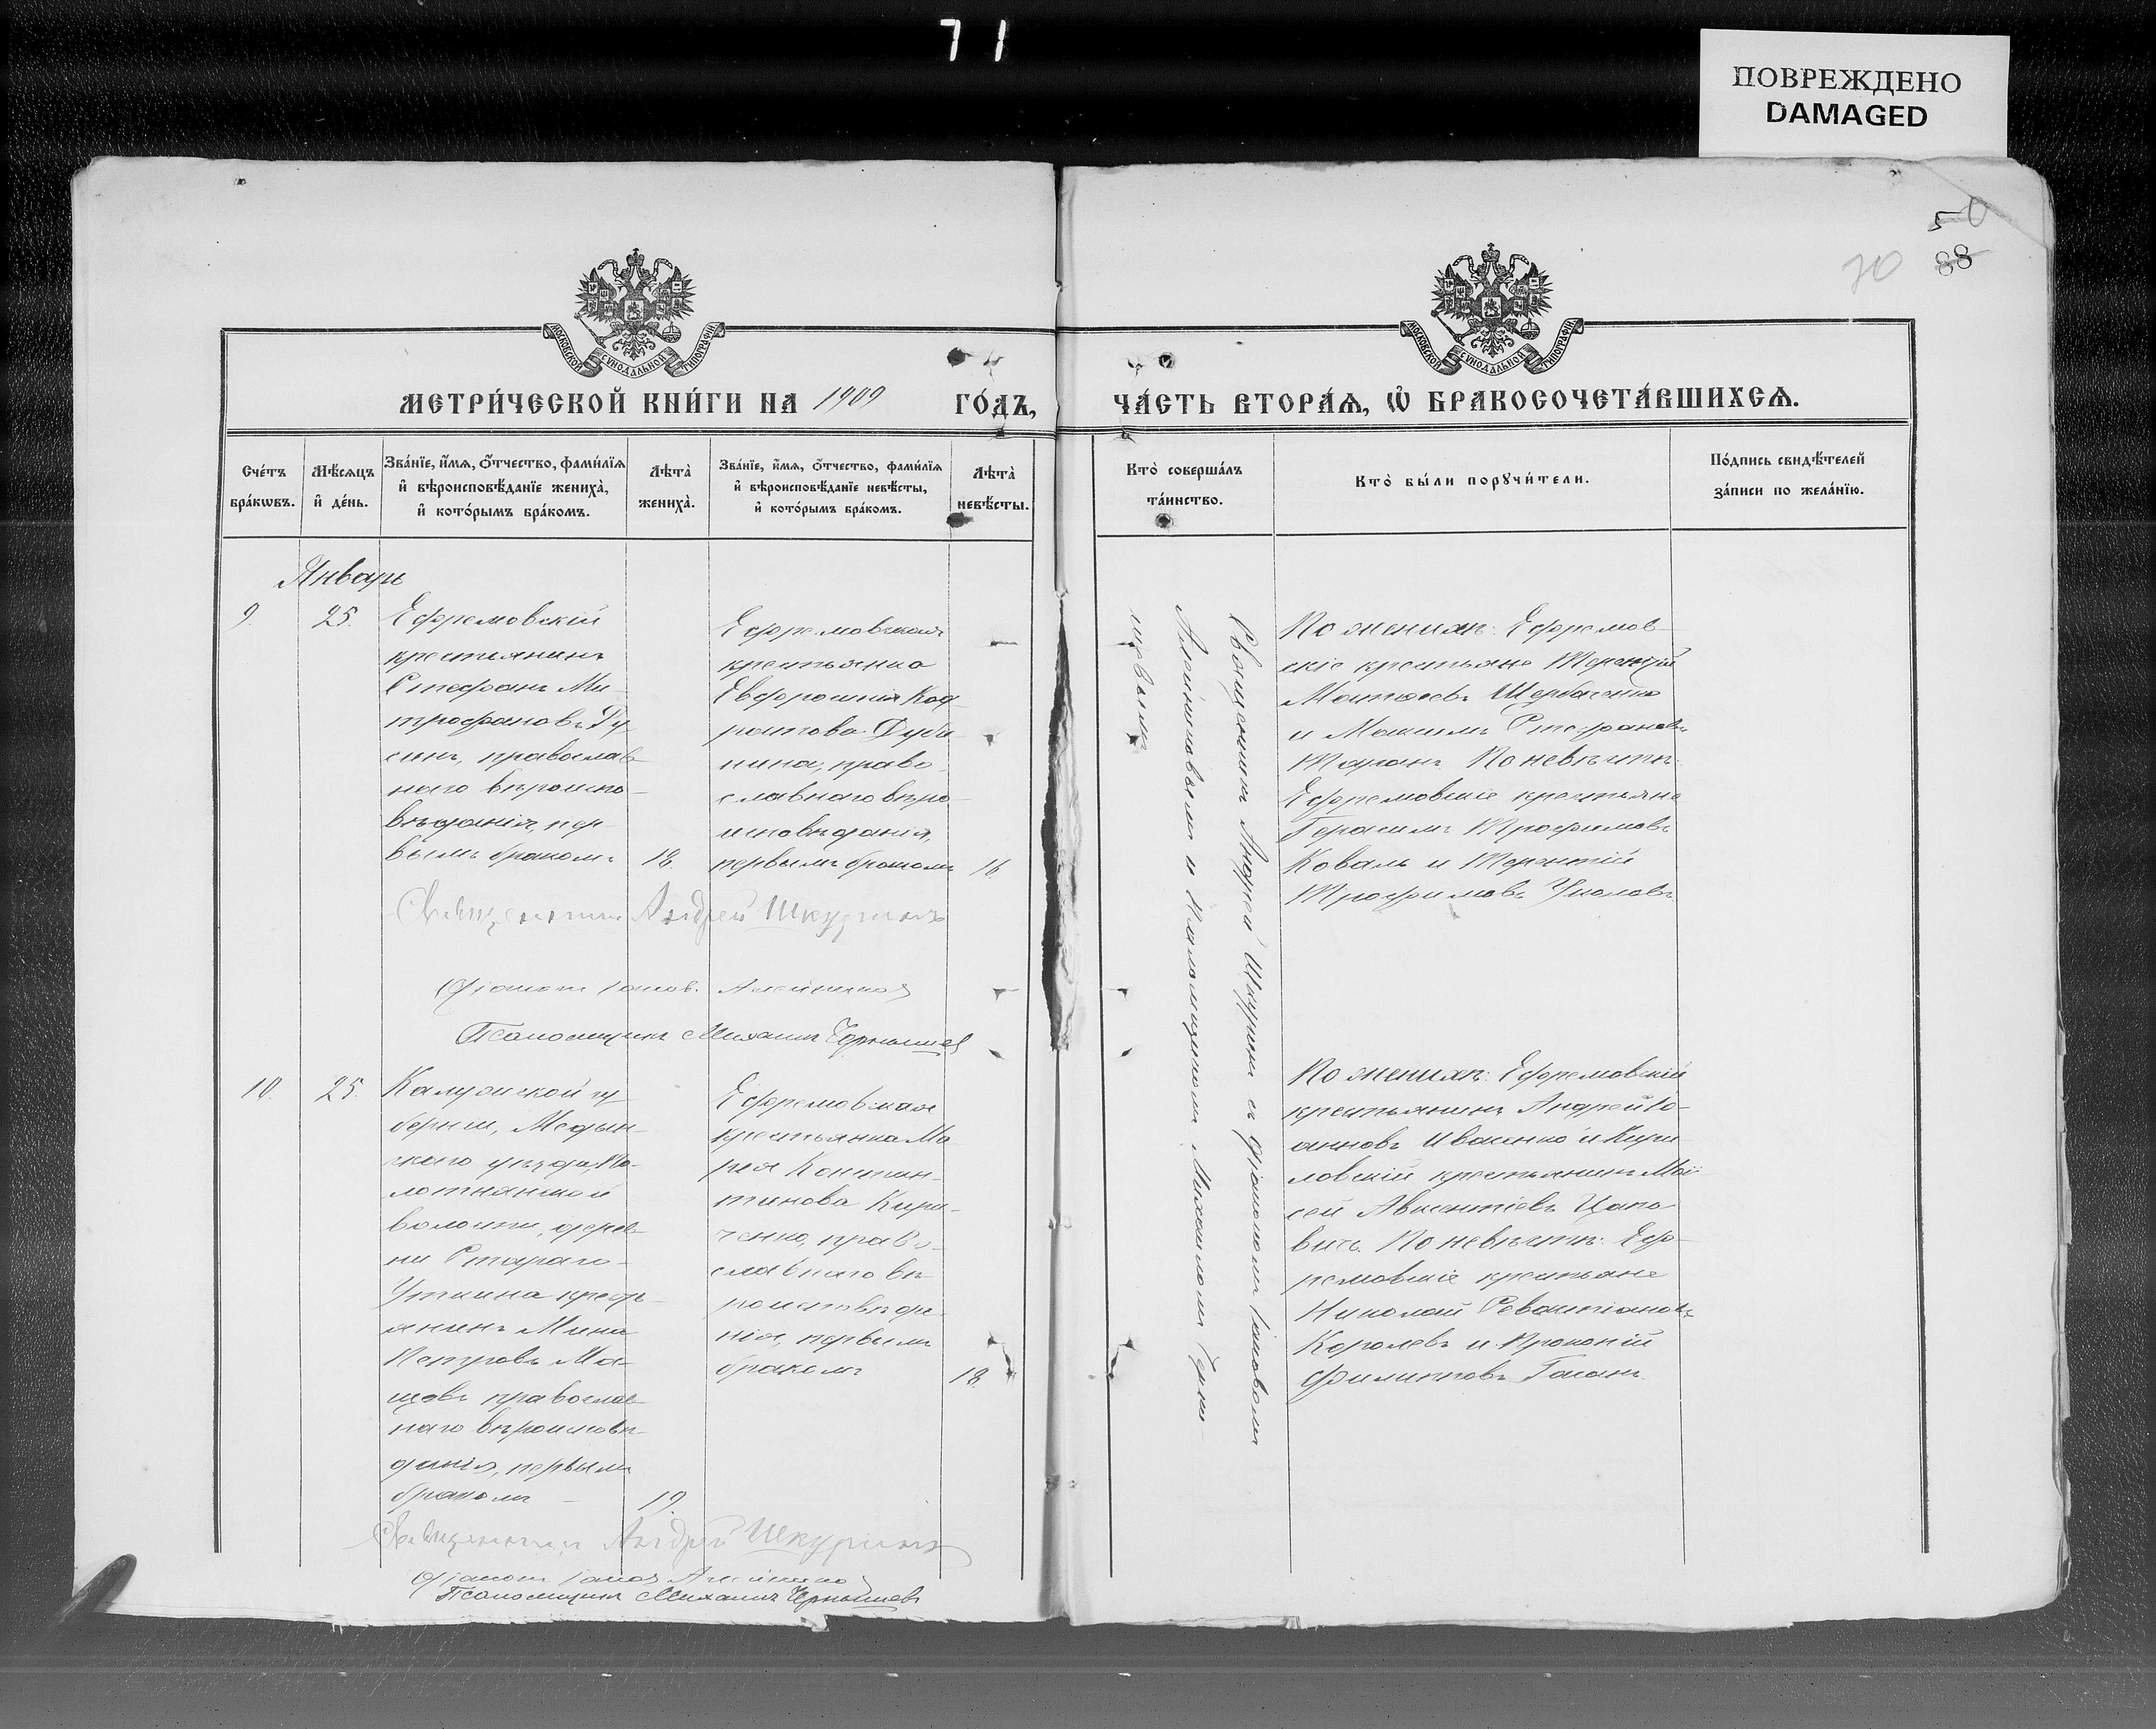 71
ПОВРЕЖДЕНО
DAMAGED
50
70 88
МОСКОВСКОЙ СѴНОДАЛЬНОЙ ТИПОГРАФІИ
МОСКОВСКОЙ СѴНОДАЛЬНОЙ ТИПОГРАФІИ
МЕТРИ́ЧЕСКОЙ КНИ́ГИ НА 1909 ГО́ДЪ,
ЧА́СТЬ ВТОРА́Ѧ, Ѡ҆ БРАКОСОЧЕТА́ВШИХСѦ.
Сче́тъ
бра́кѡвъ.
Мѣ́сѧцъ
и҆ де́нь.
Зва́нїе, и҆́мѧ, ѻ҆́тчество, фами́лїѧ
и҆ вѣроисповѣ́данїе жениха̀,
и҆ кото́рымъ бра́комъ.
Лѣта̀
жениха̀.
Зва́нїе, и҆́мѧ, ѻ҆́тчество, фами́лїѧ
и҆ вѣроисповѣ́данїе невѣ́сты,
и҆ кото́рымъ бра́комъ.
Лѣта̀
невѣ́сты.
Кто̀ соверша́лъ
та́инство.
Кто̀ бы́ли порꙋчи́тели.
По́дпись свидѣ́телей
за́писи по жела́нїю.
Январь
9.
25.
Ефремовскій
крестьянинъ
Стефанъ Ми-
трофановъ Гу
синъ, православ-
наго вѣроиспо-
вѣданія, пер-
вымъ бракомъ
18.
Ефремовская
крестьянка
Евфросинія Код
ратова Дуби
нина, право-
славнаго вѣро-
исповѣданія,
первымъ бракомъ
16.
Священникъ Андрей Шкуринъ съ діакономъ Іаковомъ
Алейниковымъ и псаломщикомъ Михаиломъ Черны-
шевымъ
По женихѣ: Ефремов-
скіе крестьяне Терентій
Матѳеевъ Щербаченко
и Максимъ Стефановъ
Таранъ. По невѣстѣ:
Ефремовскіе крестьяне
Герасимъ Трофимовъ
Коваль и Терентій
Трофимовъ Уколовъ.
Священникъ Андрей Шкуринъ
Діаконъ Іаковъ Алейниковъ
Псаломщикъ Михаилъ Чернышевъ
10.
25.
Калужской гу
берніи, Медын-
скаго уѣзда, По-
лотнянской
волости, дерев-
ни Стараго-
Уткина кресть-
янинъ Мина
Петровъ Ма-
щевъ православ-
наго вѣроисповѣ-
данія, первымъ
бракомъ
19.
Ефремовская
крестьянка Ма
рія Констан-
тинова Кири-
ченко, право-
славнаго вѣ-
роисповѣда-
нія, первымъ
бракомъ
18.
По женихѣ: Ефремовскій
крестьянинъ Андрей Іо-
анновъ Иваненко и Кири-
ловскій крестьянинъ Мои-
сей Авксентіевъ Цапо
вичъ. По невѣстѣ: Еф-
ремовскіе крестьяне
Николай Севастіановъ
Королевъ и Прокопій
Филипповъ Гасанъ.
Священникъ Андрей Шкуринъ
Діаконъ Іаковъ Алейниковъ
Псаломщикъ Михаилъ Чернышевъ